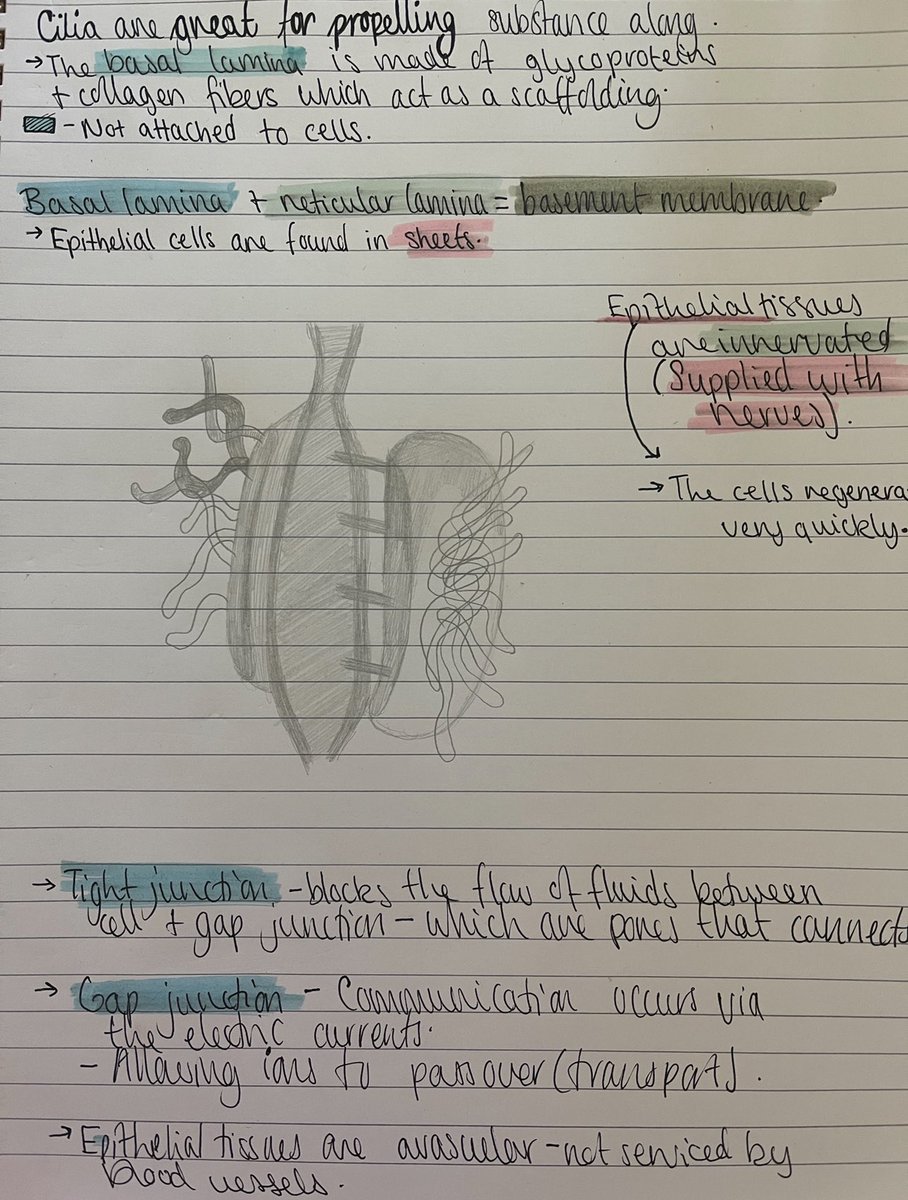 Cilia are great for propelling substance along.
→ The basal lamina is made of glycoproteins
+ collagen fibers which act as a scaffolding.
- Not attached to cells.
Basal lamina + reticular lamina = basement membrane.
→ Epithelial cells are found in sheets.
Epithelial tissues
are innervated
(Supplied with
nerves).
→ The cells regenera
very quickly.
→ Tight junction - blocks the flow of fluids between
cell + gap junction - which are pores that connects
→ Gap junction - Communication occurs via
the electric currents.
- Allowing ions to passover (transport).
→ Epithelial tissues are avascular - not serviced by
blood vessels.